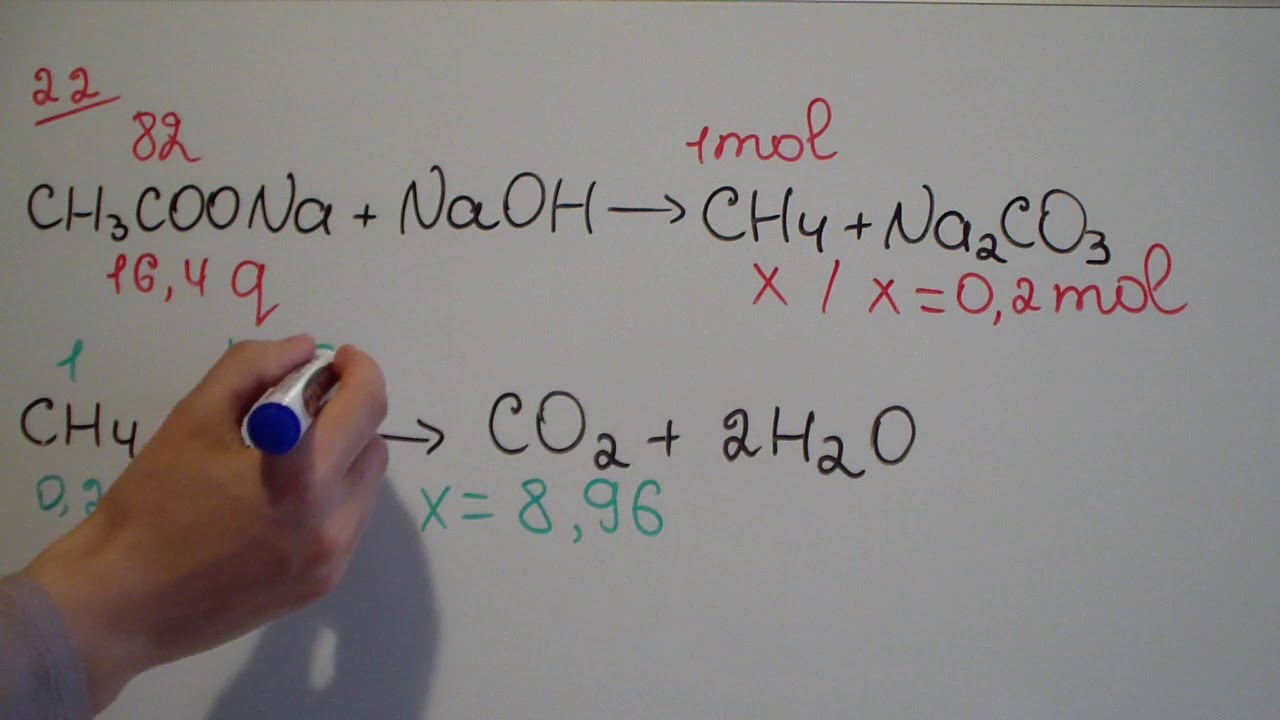 22
82 1mol
CH₃COONa + NaOH → CH4 + Na₂CO₃
16,4 q x / x = 0,2 mol
1
CH4 → CO₂ + 2H₂O
x = 8,96